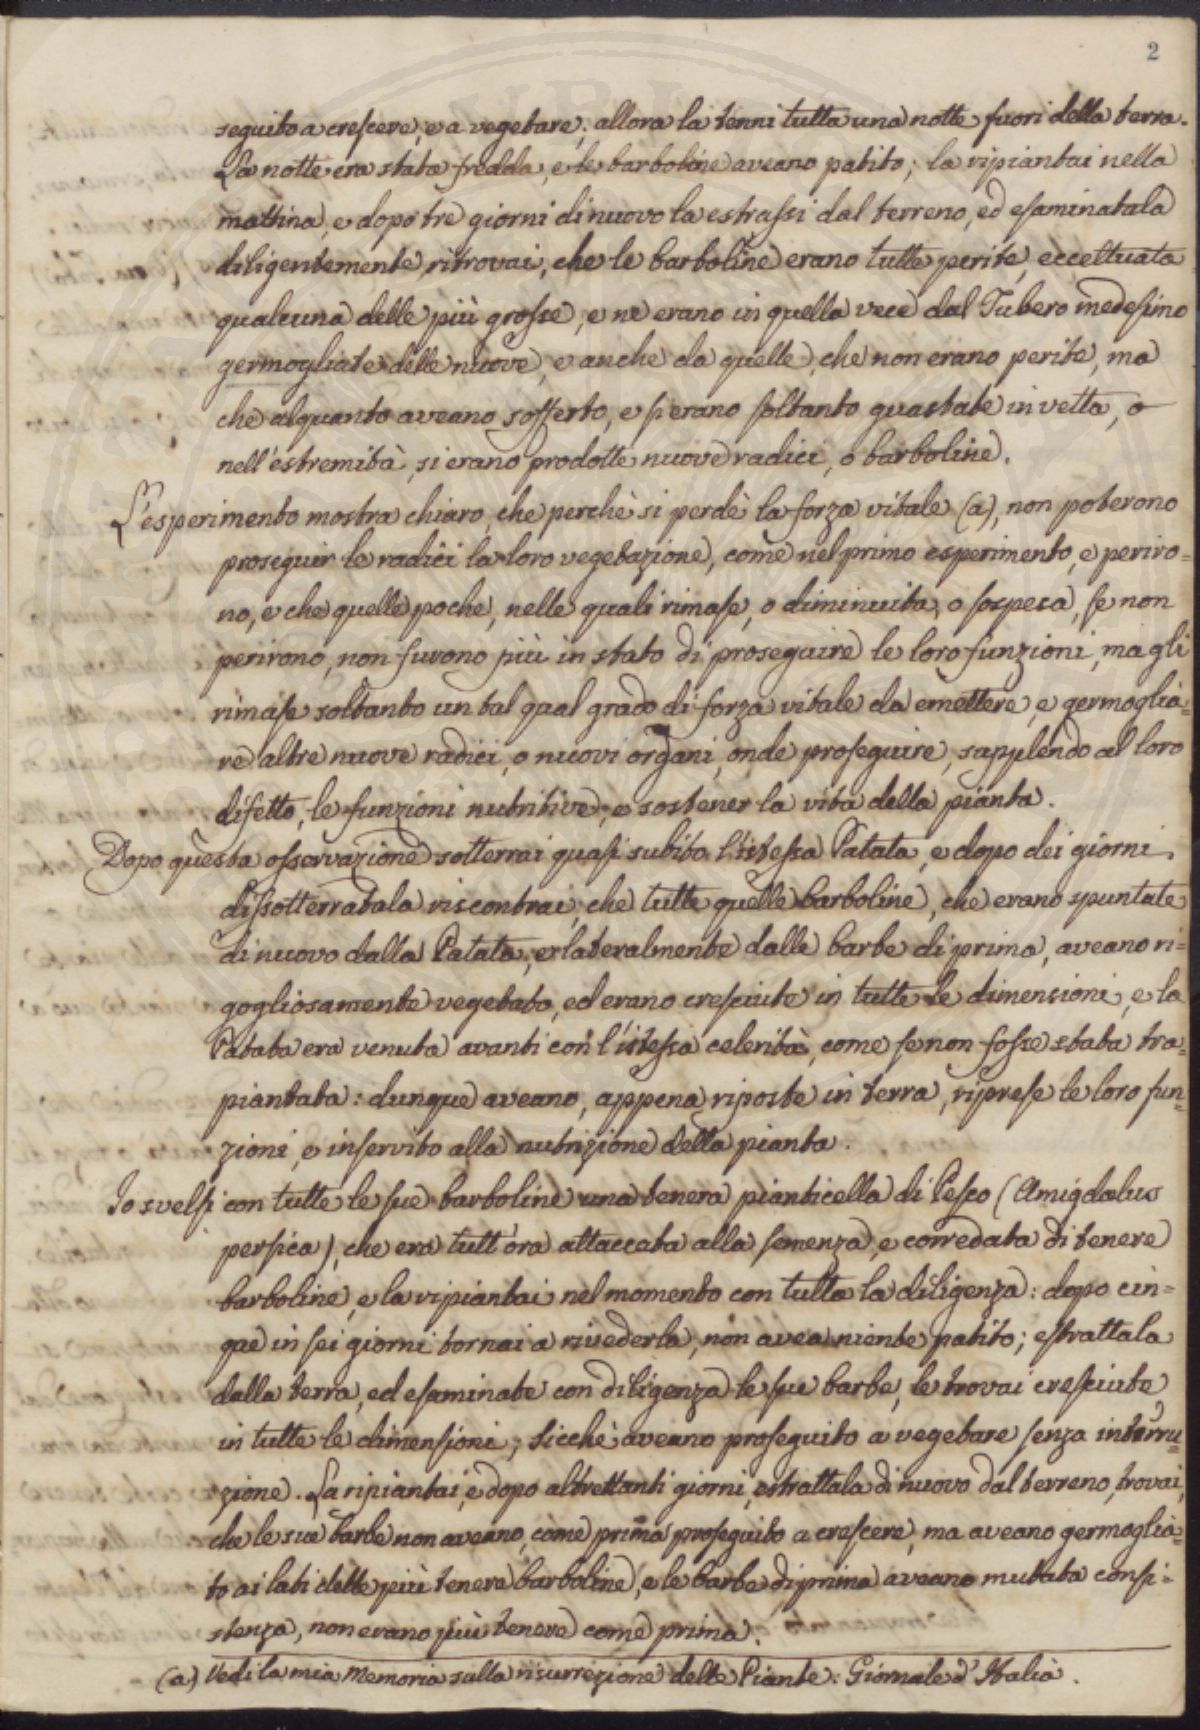 2
seguito a crescere, e a vegetare; allora la tenni tutta una notte fuori della terra.
La notte era stata fredda, e le barboline aveano patito; la ripiantai nella
mattina, e dopo tre giorni di nuovo la estrassi dal terreno, ed esaminatala
diligentemente, ritrovai, che le barboline erano tutte perite, eccettuata
qualcuna delle più grosse, e ne erano in quella vece dal Tubero medesimo
germogliate delle nuove, e anche da quelle, che non erano perite, ma
che alquanto aveano sofferto, e si erano soltanto guastate in vetta, o
nell'estremità, si erano prodotte nuove radici, o barboline.
L'esperimento mostra chiaro, che perchè si perdè la forza vitale (a), non poterono
proseguir le radici la loro vegetazione, come nel primo esperimento, e periro=
no, e che quelle poche, nelle quali rimase, o diminuita, o sospesa, se non
perirono, non furono più in stato di proseguire le loro funzioni, ma gli
rimase soltanto un tal qual grado di forza vitale da emettere, e germoglia=
re altre nuove radici, o nuovi organi, onde proseguire, supplendo al loro
difetto, le funzioni nutritive, e sostener la vita della pianta.
Dopo questa osservazione sotterrai quasi subito l'istessa Patata, e dopo dei giorni
dissotterratala riscontrai, che tutte quelle barboline, che erano spuntate
di nuovo dalla Patata, e lateralmente dalle barbe di prima, aveano ri=
gogliosamente vegetato, ed erano cresciute in tutte le dimensioni, e la
Patata era venuta avanti con l'istessa celerità, come se non fosse stata tra=
piantata: dunque aveano, appena riposte in terra, riprese le loro fun=
zioni, e inservito alla nutrizione della pianta.
Io svelsi con tutte le sue barboline una tenera pianticella di Pesco (Amigdalus
persica), che era tutt'ora attaccata alla semenza, e corredata di tenere
barboline, e la ripiantai nel momento con tutta la diligenza: dopo cin=
que in sei giorni tornai a rivederla, non avea niente patito; estrattala
dalla terra, ed esaminate con diligenza le sue barbe, le trovai cresciute
in tutte le dimensioni; sicchè aveano proseguito a vegetare senza interru=
zione. La ripiantai, e dopo altrettanti giorni, estrattala di nuovo dal terreno, trovai,
che le sue barbe non aveano, come prima proseguito a crescere, ma aveano germoglia=
to ai lati delle più tenere barboline, e le barbe di prima aveano mutata consi=
stenza, non erano più tenere come prima.
(a) Vedi la mia Memoria sulla risurrezione delle Piante: Giornale d'Italia.